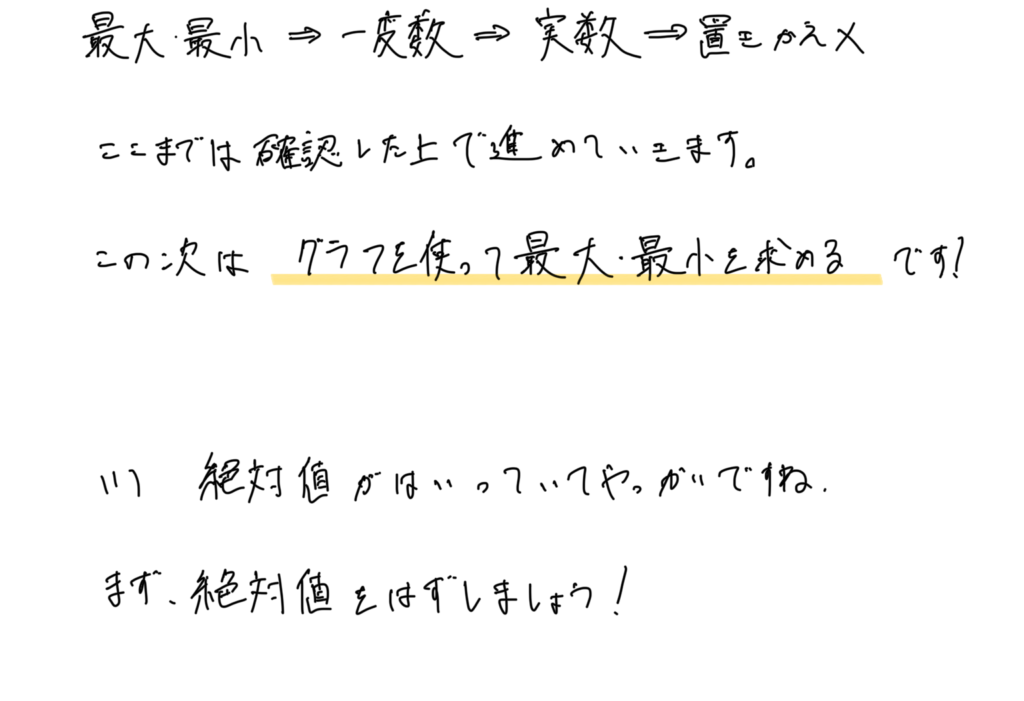 最大・最小 ⇒ 一変数 ⇒ 実数 ⇒ 置きかえ×
ここまでは確認した上で進めていきます。
この次は グラフを使って最大・最小を求める です!
(1) 絶対値がはいっていてやっかいですね.
まず、絶対値をはずしましょう!